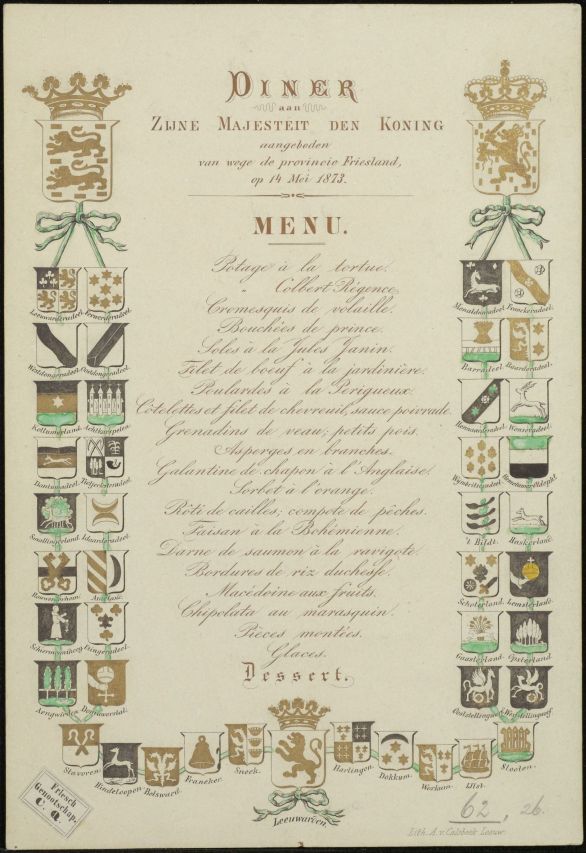 DINER
aan
ZIJNE MAJESTEIT DEN KONING
aangeboden
van wege de provincie Friesland,
op 14 Mei 1873.
MENU.
Potage à la tortue.
" Colbert Régence,
Cromesquis de volaille.
Bouchées de prince.
Soles à la Jules Janin.
Filet de boeuf à la jardinière.
Poulardes à la Perigueux.
Côtelettes et filet de chevreuil, sauce poivrade.
Grenadins de veau, petits pois.
Asperges en branches.
Galantine de chapon à l'Anglaise.
Sorbet à l'orange.
Rôti de cailles, compote de pêches.
Faisan à la Bohémienne.
Darne de saumon à la ravigote.
Bordures de riz duchesse,
Macédoine aux fruits.
Chepolata au marasquin.
Pièces montées.
Glaces.
Dessert.
Leeuwarderadeel. Ferwerderadeel.
Westdongeradeel. Oostdongeradeel.
Kollumerland. Achtkarspelen.
Dantumadeel. Tietjerksteradeel.
Smallingerland. Idaarderadeel.
Rauwerderhem.
Schiermonnikoog. Utingeradeel.
Aengwirden. Doniawerstal.
Menaldumadeel. Franekeradeel.
Barradeel. Baarderadeel.
Hennaarderadeel. Wonseradeel.
Wymbritseradeel.
't Bildt. Haskerland.
Schoterland. Lemsterland.
Gaasterland. Opsterland.
Ooststellingwerf. Weststellingwerf.
Stavoren.
Hindeloopen.
Bolsward.
Franeker.
Sneek.
Leeuwarden.
Harlingen.
Dokkum.
Workum.
IJlst.
Slooten.
Friesch
Genootschap.
C. a.
62, 26.
Lith. A. v. Calsbeek Leeuw.